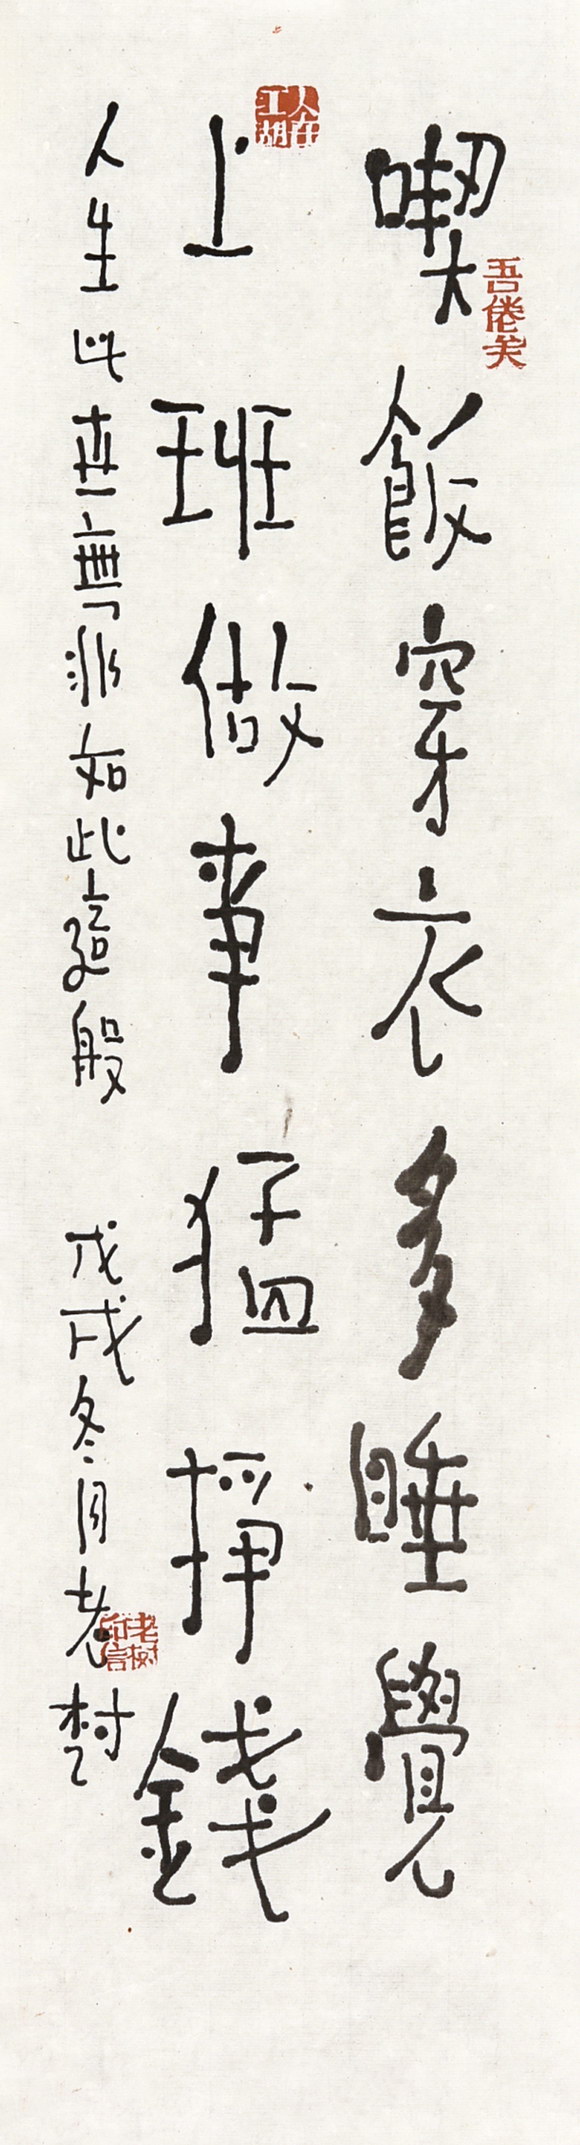 喫飯穿衣多睡覺
上班做事猛掙錢
人生此世無非如此這般
戊戌冬月老樹
吾倦矣
人在江湖
老樹印信